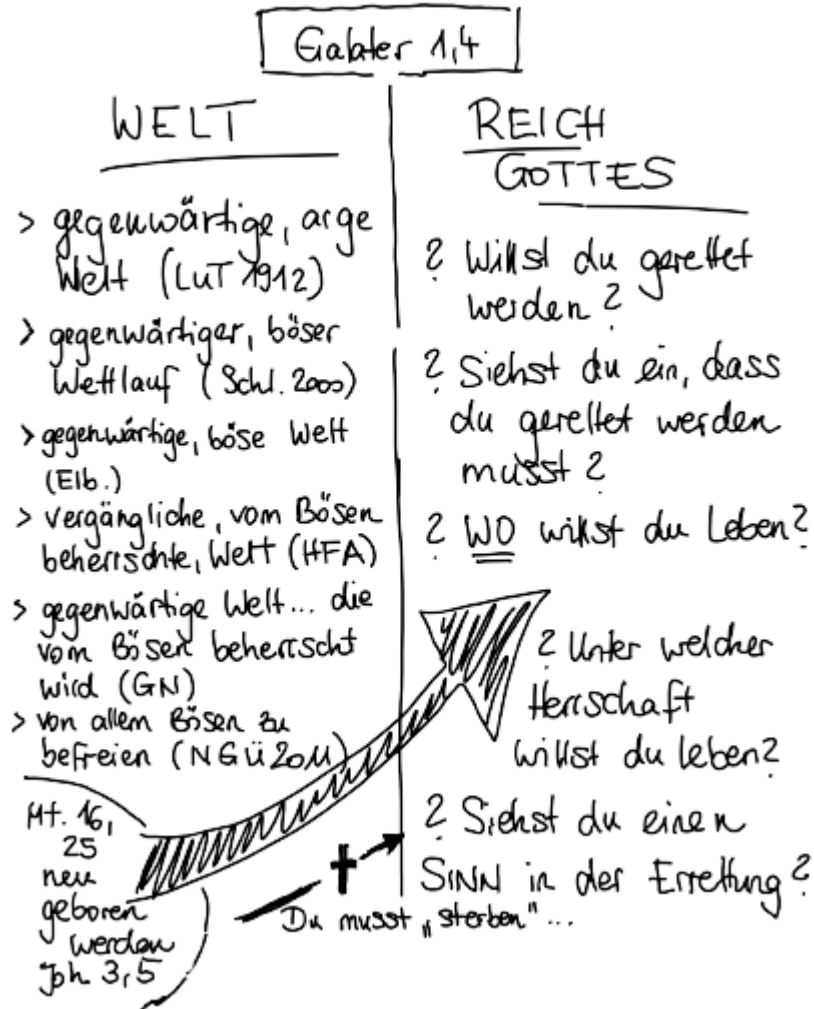 Galater 1,4
WELT
> gegenwärtige, arge
Welt (LUT 1912)
> gegenwärtiger, böser
Weltlauf (Schl. 2000)
> gegenwärtige, böse Welt
(Elb.)
> vergängliche, vom Bösen
beherrschte, Welt (HFA)
> gegenwärtige Welt... die
vom Bösen beherrscht
wird (GN)
> von allem Bösen zu
befreien (NGÜ2011)
Mt. 16,
25
neu
geboren
werden
Joh 3,5
REICH
GOTTES
? Willst du gerettet
werden?
? Siehst du ein, dass
du gerettet werden
musst?
? WO willst du Leben?
? Unter welcher
Herrschaft
willst du leben?
? Siehst du einen
SINN in der Errettung?
Du musst „sterben"...